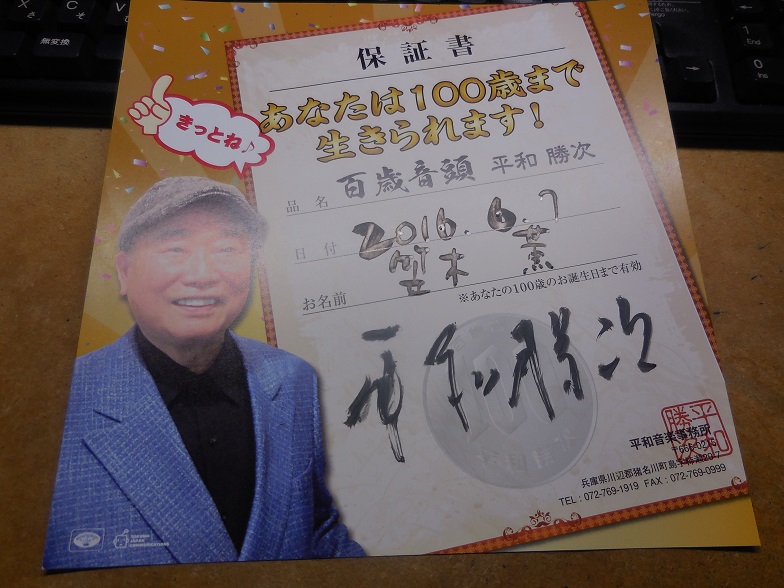 無変換
保証書
あなたは100歳まで
生きられます!
きっとね♪
品名 百歳音頭 平和 勝次
日付 2016.6.7
お名前 笹木 薫
※あなたの100歳のお誕生日まで有効
平和勝次
平和音楽事務所
兵庫県川辺郡猪名川町
TEL : 072-769-1919 FAX : 072-769-0999